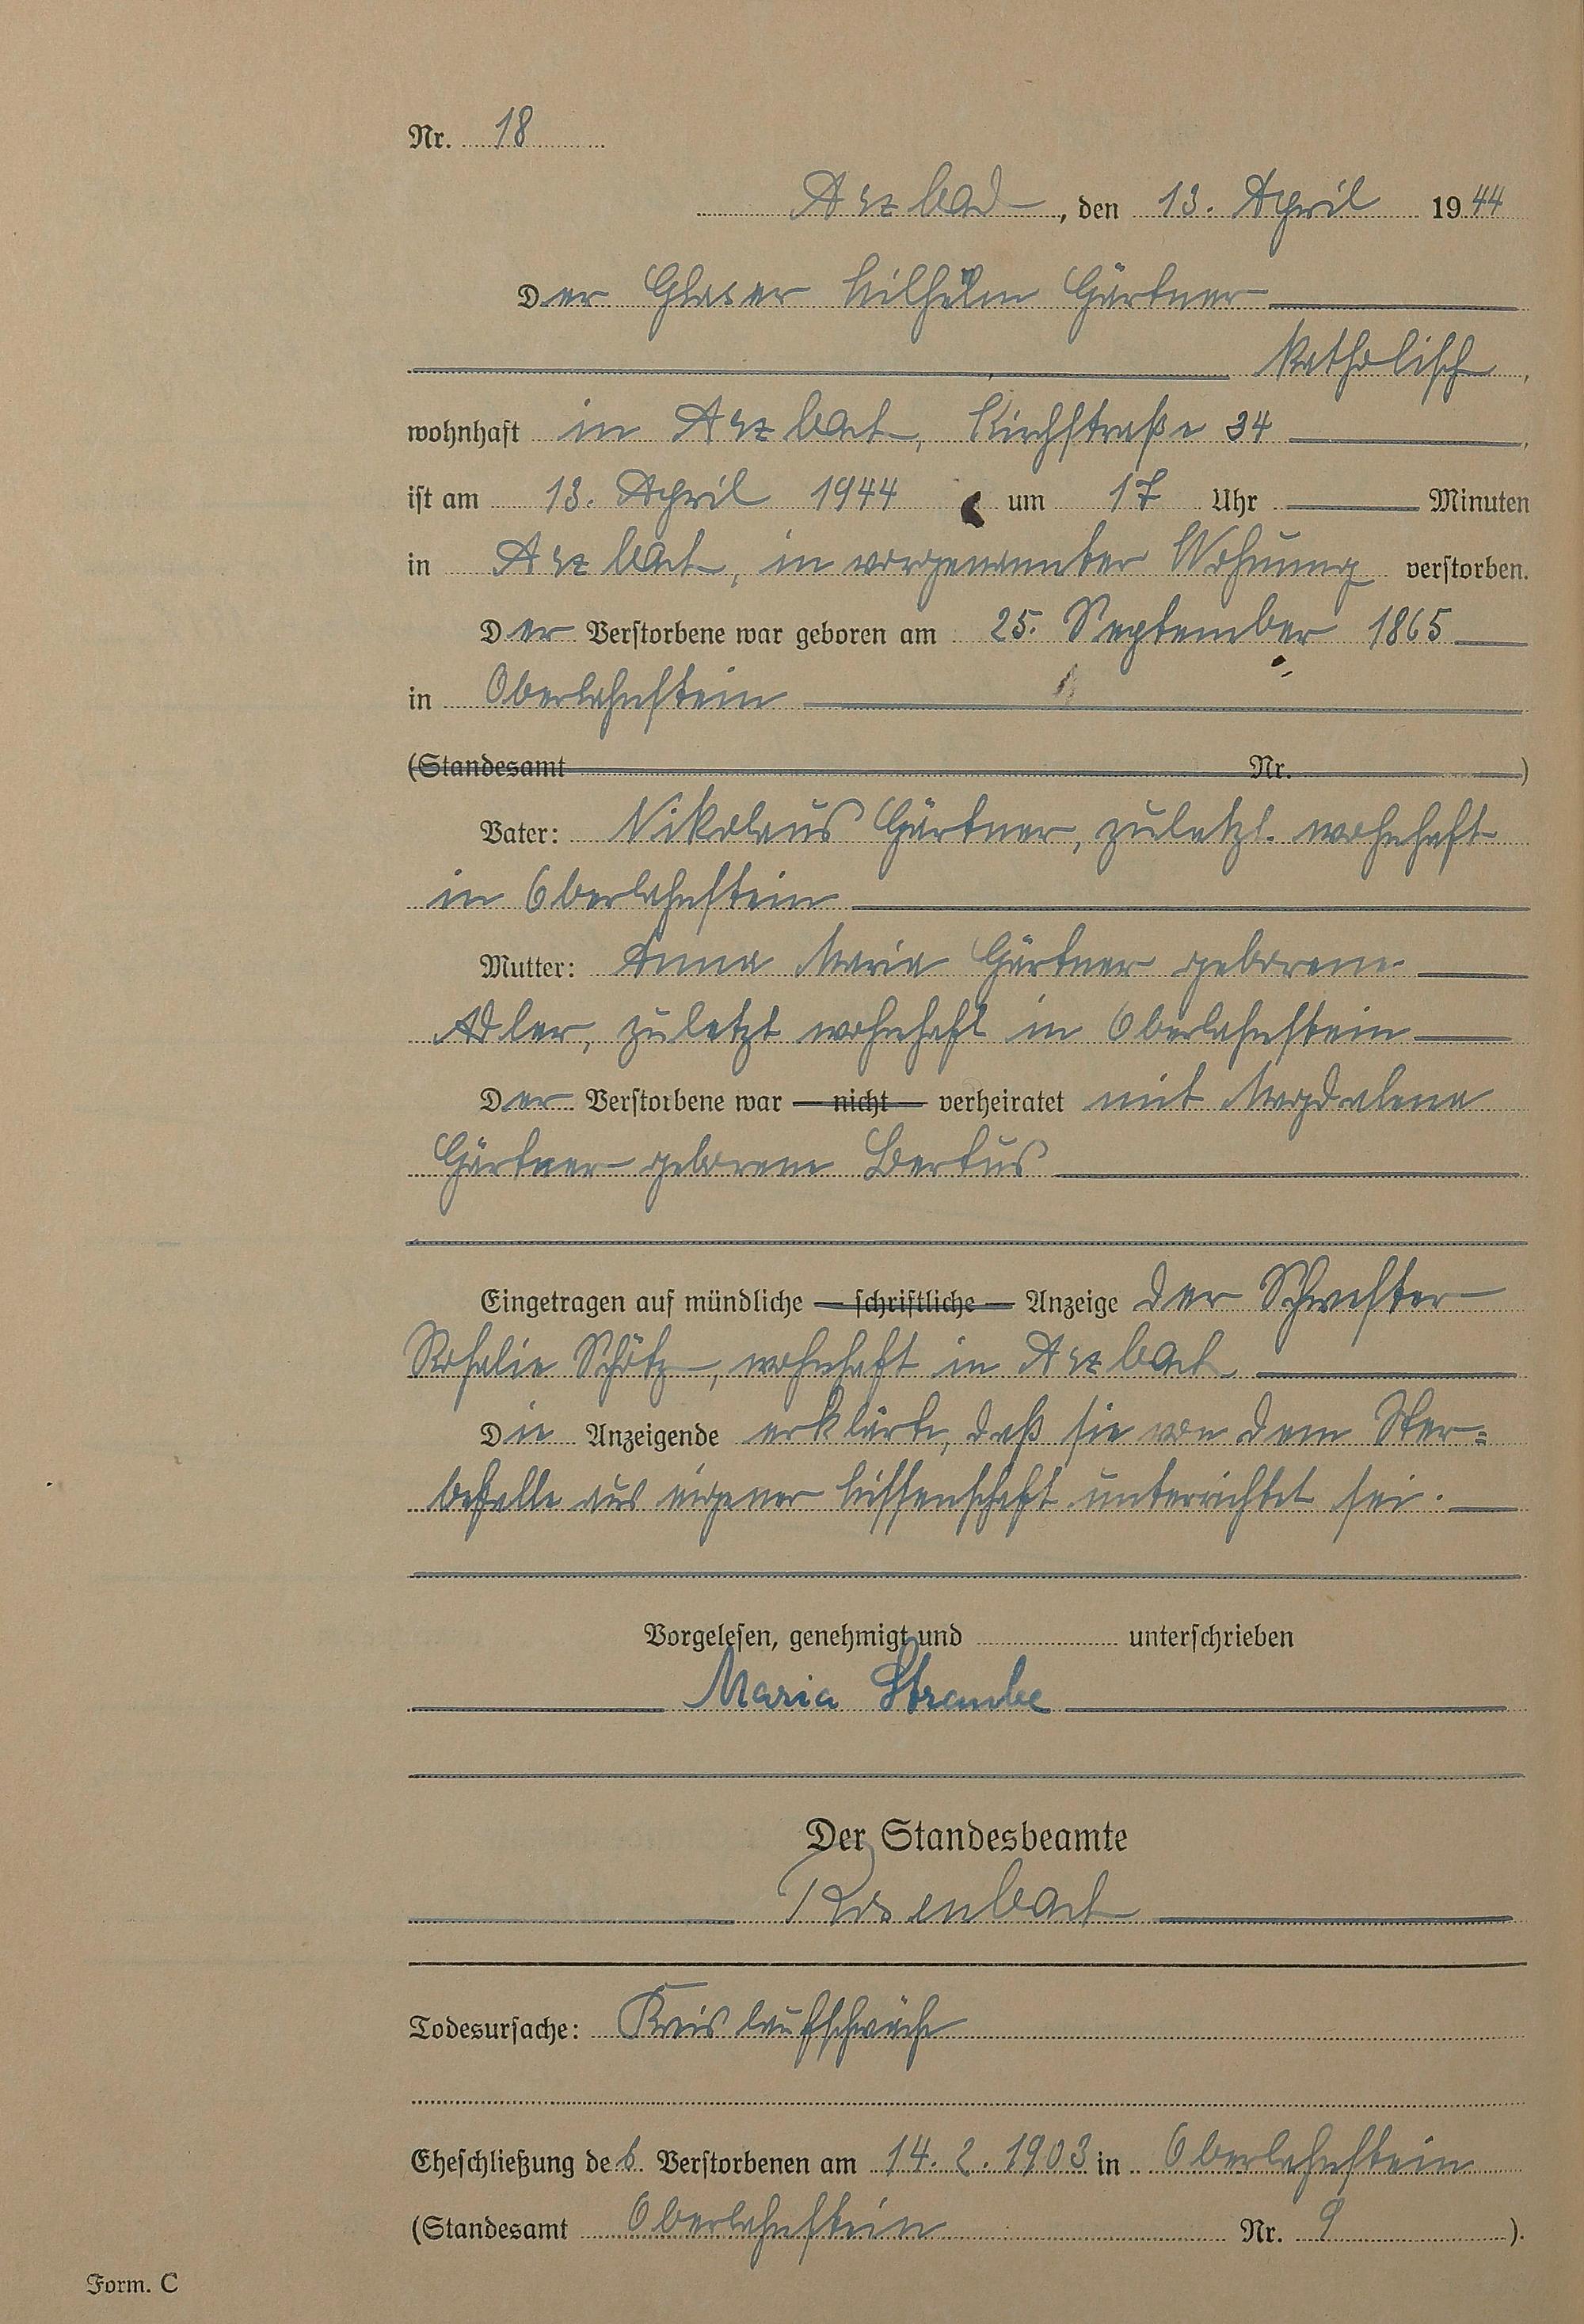 Nr. 18
Arzbach, den 13. April 1944
Der Glaser Wilhelm Gärtner
katholisch,
wohnhaft in Arzbach, Kirchstraße 34,
ist am 13. April 1944 um 17 Uhr Minuten
in Arzbach, in vorgenannter Wohnung verstorben.
Der Verstorbene war geboren am 25. September 1865
in Oberlahnstein
(Standesamt Nr. )
Vater: Nikolaus Gärtner, zuletzt wohnhaft
in Oberlahnstein
Mutter: Anna Maria Gärtner geborene
Adler, zuletzt wohnhaft in Oberlahnstein
Der Verstorbene war — nicht — verheiratet mit Magdalena
Gärtner geborene Bertus
Eingetragen auf mündliche — schriftliche — Anzeige der Schwester
Rosalie Schötz, wohnhaft in Arzbach
Die Anzeigende erklärte, daß sie von dem Ster=
befalle aus eigener Wissenschaft unterrichtet sei.
Vorgelesen, genehmigt und unterschrieben
Maria
Der Standesbeamte
Rosenbach
Todesursache: Kreislaufschwäche
Eheschließung des Verstorbenen am 14. 2. 1903 in Oberlahnstein
(Standesamt Oberlahnstein Nr. 9 ).
Form. C